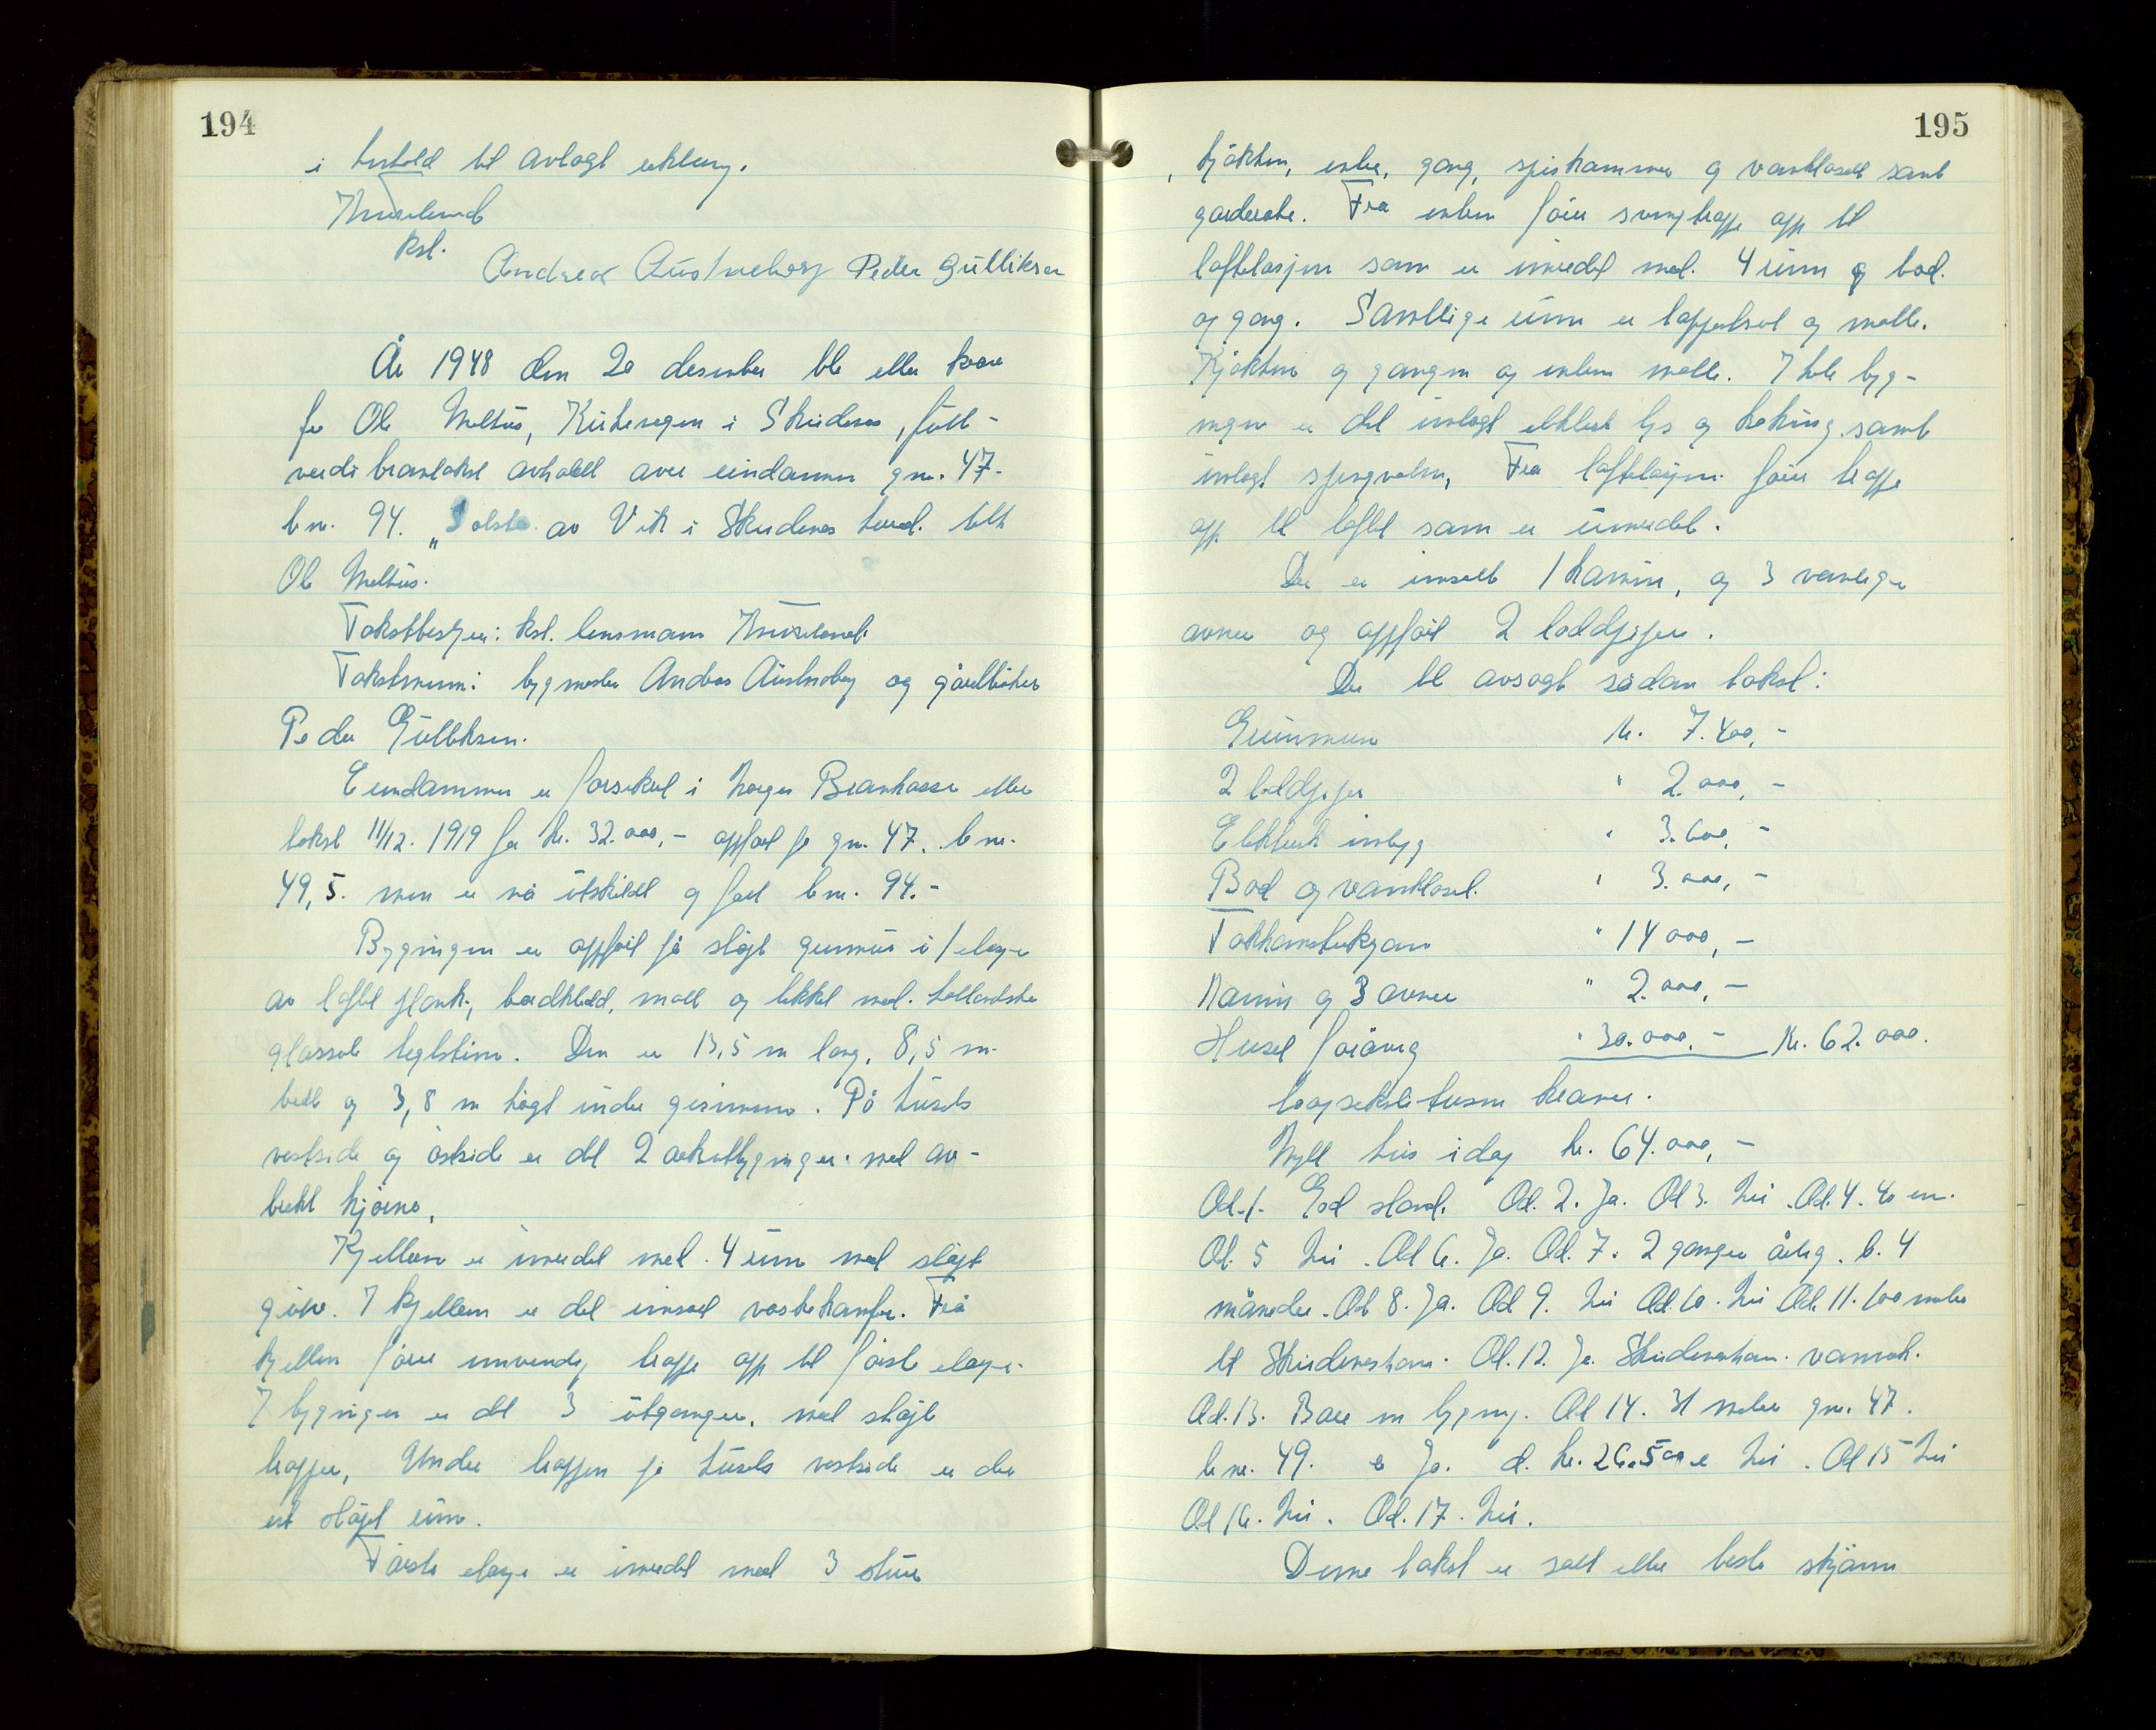 194
i henhold til avlagt erklæring.
Knuseland
kst.
Andreas Austneberg Peder Gulliksen
År 1948 den 20 desember ble etter krav
fra Ole Meltus, Kirkevegen i Skudenes, full-
verdi branntakst avholdt over eindommen gnr. 47-
bnr. 94. „Solstø av Vik i Skudenes herred. tilh
Ole Meltus.
Takstbestyrer: kst. lensmann Knuseland.
Takstmenn: bygmester Andreas Austneberg og gårdbruker
Peder Gulliksen.
Eiendommen er forsikret i Norges Brannkasse etter
takst 11/12. 1919 for kr. 32.000,- oppført på gnr. 47. bnr.
49,5. men er nå utskildt og fått bnr. 94.-
Bygningen er oppført på støpt grunnmur i 1 etasje
av laftet plank, bordkledd, malt og tekket med hollandske
glasserte teglstein. Den er 13,5 m lang, 8,5 m.
bred og 3,8 m høgt under gesimsen. På husets
vestside og østside er det 2 arkutbygninger med av-
brukt hjørne.
Kjelleren er innredet med 4 rum med støpt
gulv. I kjelleren er det innsatt vaskekomfyr. Fra
kjelleren fører innvendig trapp opp til første etasje.
I bygningen er det 3 utganger, med støpte
trapper, Under trappen på husets vestside er der
et støpt rum.
Første etasje er innredet med 3 stuer
195
, kjøkken, entre, gang, spiskammer og vannklosett samt
garderobe. Fra entreen fører svingtrapp opp til
loftetasjen som er innredet med 4 rum og bad.
og gang. Samtlige rum er tappetsert og malte.
Kjøkken og gangen og entreen malte. I hele byg-
ningen er det innlagt elektrisk lys og koking samt
innlagt springvatn, Fra loftetasjen fører trapp
opp til loftet som er uinnredet.
Der er innsatt 1 kamin, og 3 vanlige
ovner og oppført 2 loddpiper.
Der ble avsagt sådan takst:
Grunnmuren kr. 7.400,-
2 loddpiper " 2.000,-
Elektrisk innlegg " 3.600,-
Bad og vannklosett. " 3.000,-
Takkonstruksjonen " 14 000,-
Kamin og 3 ovner " 2.000,-
Huset forøvrig " 30.000,- kr. 62.000.
toogsekstitusen kroner.
Nytt hus idag kr. 64.000,-
Ad.1. God stand. Ad. 2. Ja. Ad 3. Nei. Ad. 4. 40 m.
Ad. 5 Nei. Ad 6. Ja. Ad. 7. 2 ganger årlig. b. 4
måneder. Ad 8. Ja. Ad 9. Nei Ad. 10. Nei Ad. 11. 100 meter
til Skudeneshavn. Ad. 12. Ja. Skudeneshavn. vannverk.
Ad. 13. Bare en bygning. Ad 14. 31 meter gnr. 47.
bnr. 49. Ja. d. kr. 26.500 e Nei. Ad 15 Nei
Ad 16. Nei. Ad. 17. Nei.
Denne takst er satt etter beste skjønn